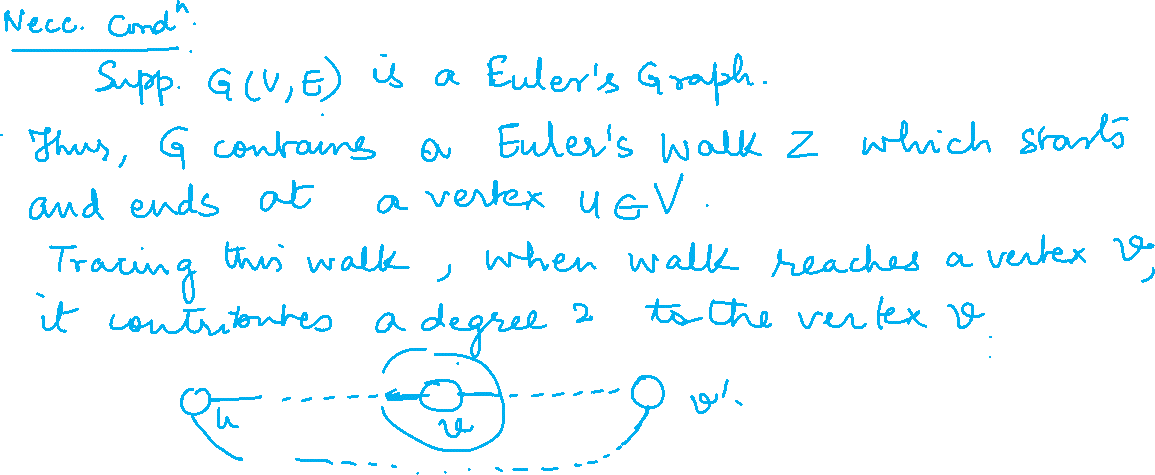 Necc. Condⁿ.
Supp. G(V,E) is a Euler's Graph.
Thus, G contains a Euler's Walk Z which starts
and ends at a vertex u∈V.
Tracing this walk, when walk reaches a vertex v,
it contributes a degree 2 to the vertex v.
u v v'.